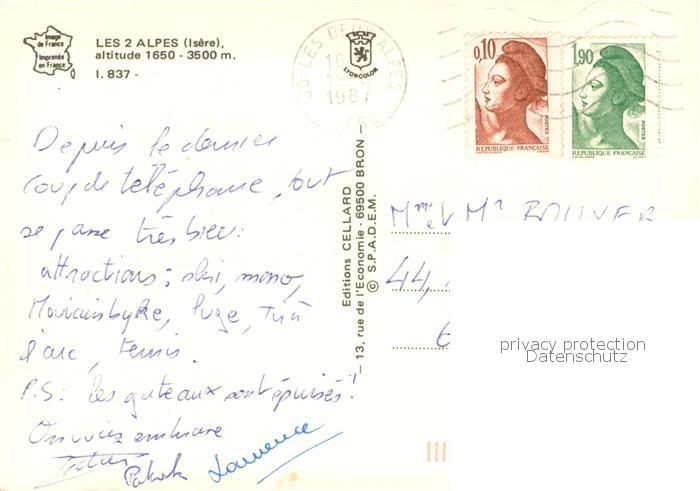 Image
de France
Imprimée
en France
LES 2 ALPES (Isère),
altitude 1650 - 3500 m.
I. 837 -
LYONCOLOR
LES DEUX ALPES
1987
0,10
POSTES
REPUBLIQUE FRANÇAISE
1,90
POSTES
REPUBLIQUE FRANÇAISE
Depuis le dernier
coup de téléphone, tout
se passe très bien:
attractions: ski, mono,
luge, Tir à
l'arc, tennis.
P.S: les gateaux sont épuisés!
On vous embrasse
Laurence
Editions CELLARD
- 13, rue de l'Economie - 69500 BRON -
© S.P.A.D.E.M.
Mme Mr BOUVER
44,
6
privacy protection
Datenschutz